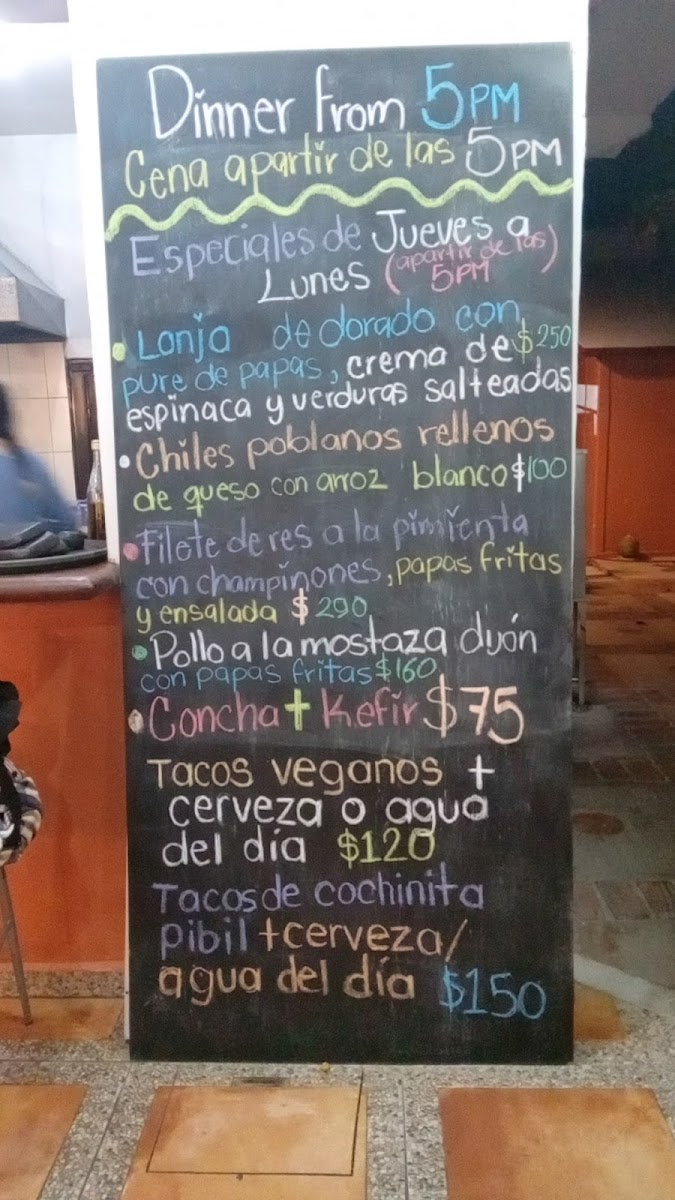 Dinner from 5PM
Cena apartir de las 5PM
Especiales de Jueves a
Lunes (apartir de las 5PM)
• Lonja de dorado con
pure de papas, crema de $250
espinaca y verduras salteadas
• Chiles poblanos rellenos
de queso con arroz blanco $100
• Filete de res a la pimienta
con champiñones, papas fritas
y ensalada $290
• Pollo a la mostaza dijón
con papas fritas $160
• Concha + Kefir $75
Tacos veganos +
cerveza o agua
del día $120
Tacos de cochinita
pibil + cerveza/
agua del día $150